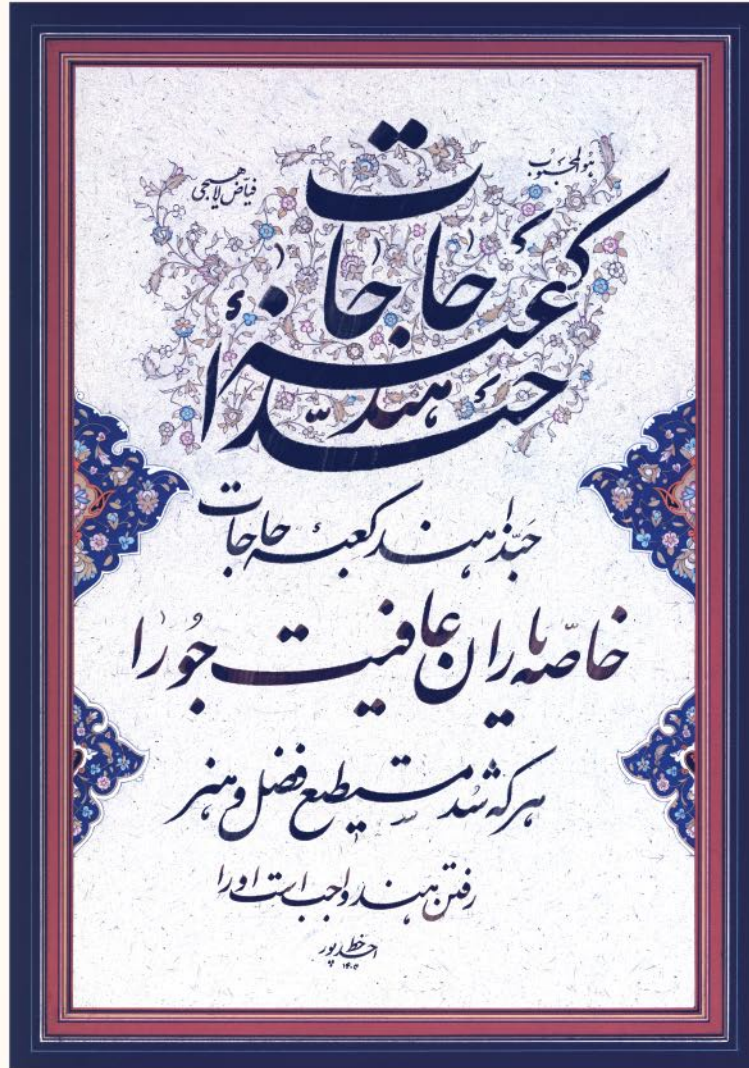 هوالمحبوب
فیاض لاهیجی
حبّذا هند کعبۀ حاجات
حبّذا هند کعبۀ حاجات
خاصّه یاران عافیت جُو را
هر که شُد مستطیع فضل و هنر
رفتن هند واجب است او را
خط احدپور